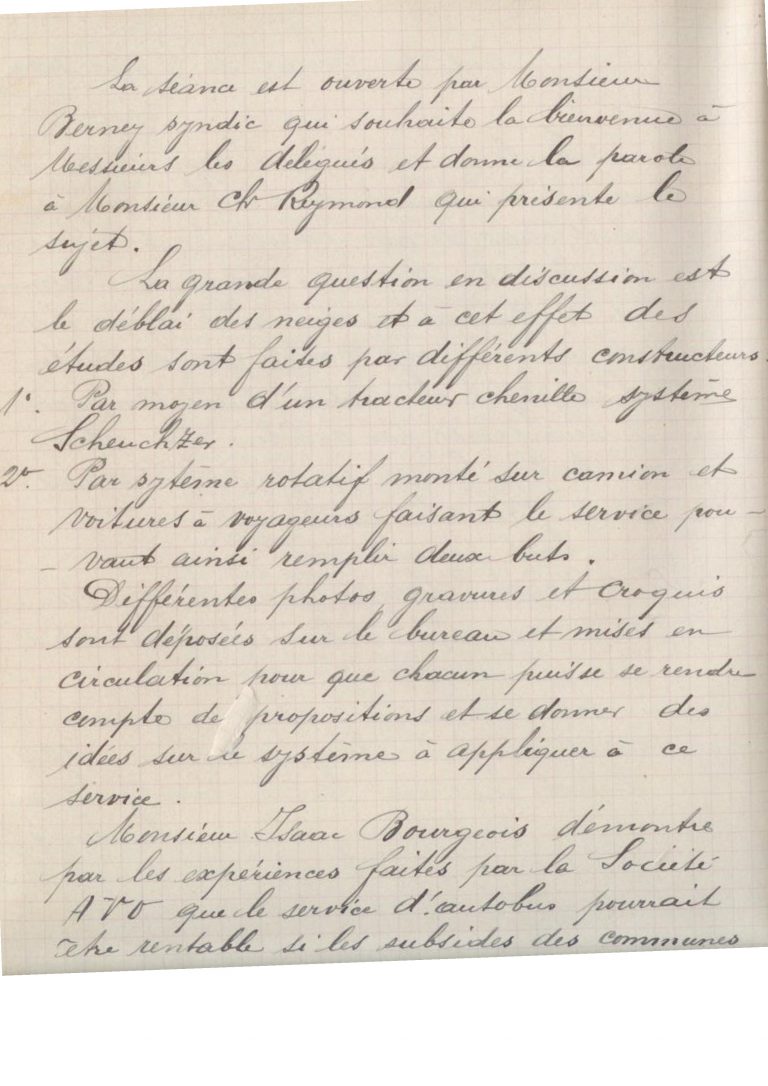 La séance est ouverte par Monsieur
Berney syndic qui souhaite la bienvenue à
Messieurs les délégués et donne la parole
à Monsieur Ch Reymond qui présente le
sujet.
La grande question en discussion est
le déblai des neiges et à cet effet des
études sont faites par différents constructeurs.
1º. Par moyen d'un tracteur chenille système
Scheuchzer.
2º. Par sytème rotatif monté sur camion et
voitures à voyageurs faisant le service pou-
- vant ainsi remplir deux buts.
Différentes photos, gravures et croquis
sont déposées sur le bureau et mises en
circulation pour que chacun puisse se rendre
compte de propositions et se donner des
idées sur le système à appliquer à ce
service.
Monsieur Isaac Bourgeois démontre
par les expériences faites par la Société
AVO que le service d'autobus pourrait
être rentable si les subsides des communes